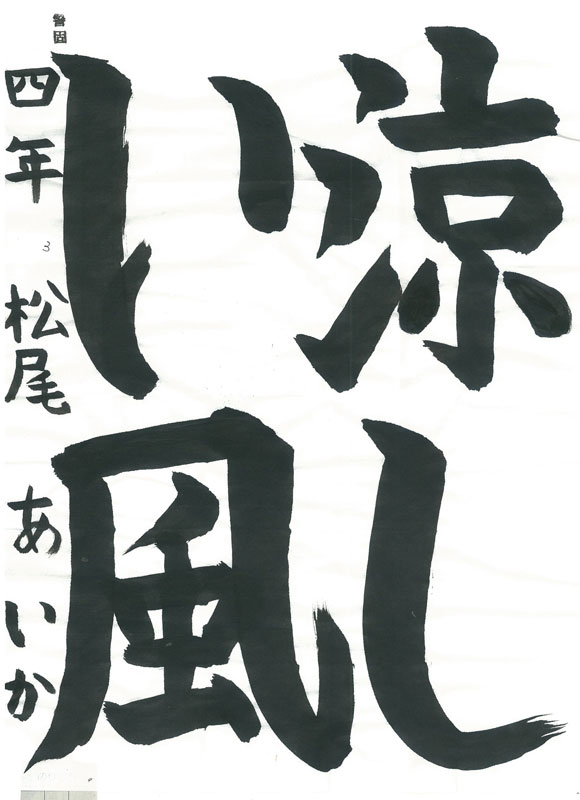 涼し
い風
警固
四年 松尾 あいか
3